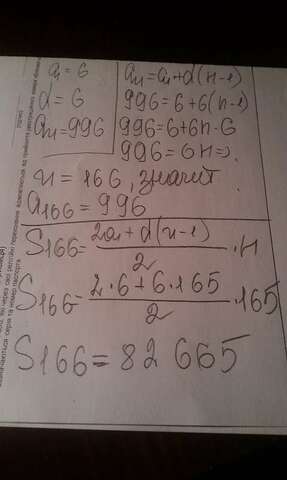 a₁ = 6
d = 6
aₙ = 996
aₙ = a₁ + d(n-1)
996 = 6 + 6(n-1)
996 = 6 + 6n - 6
996 = 6n =>
n = 166, значит
a166 = 996
S166 = (2a₁ + d(n-1))/2 · n
S166 = (2·6 + 6·165)/2 · 165
S166 = 82 665